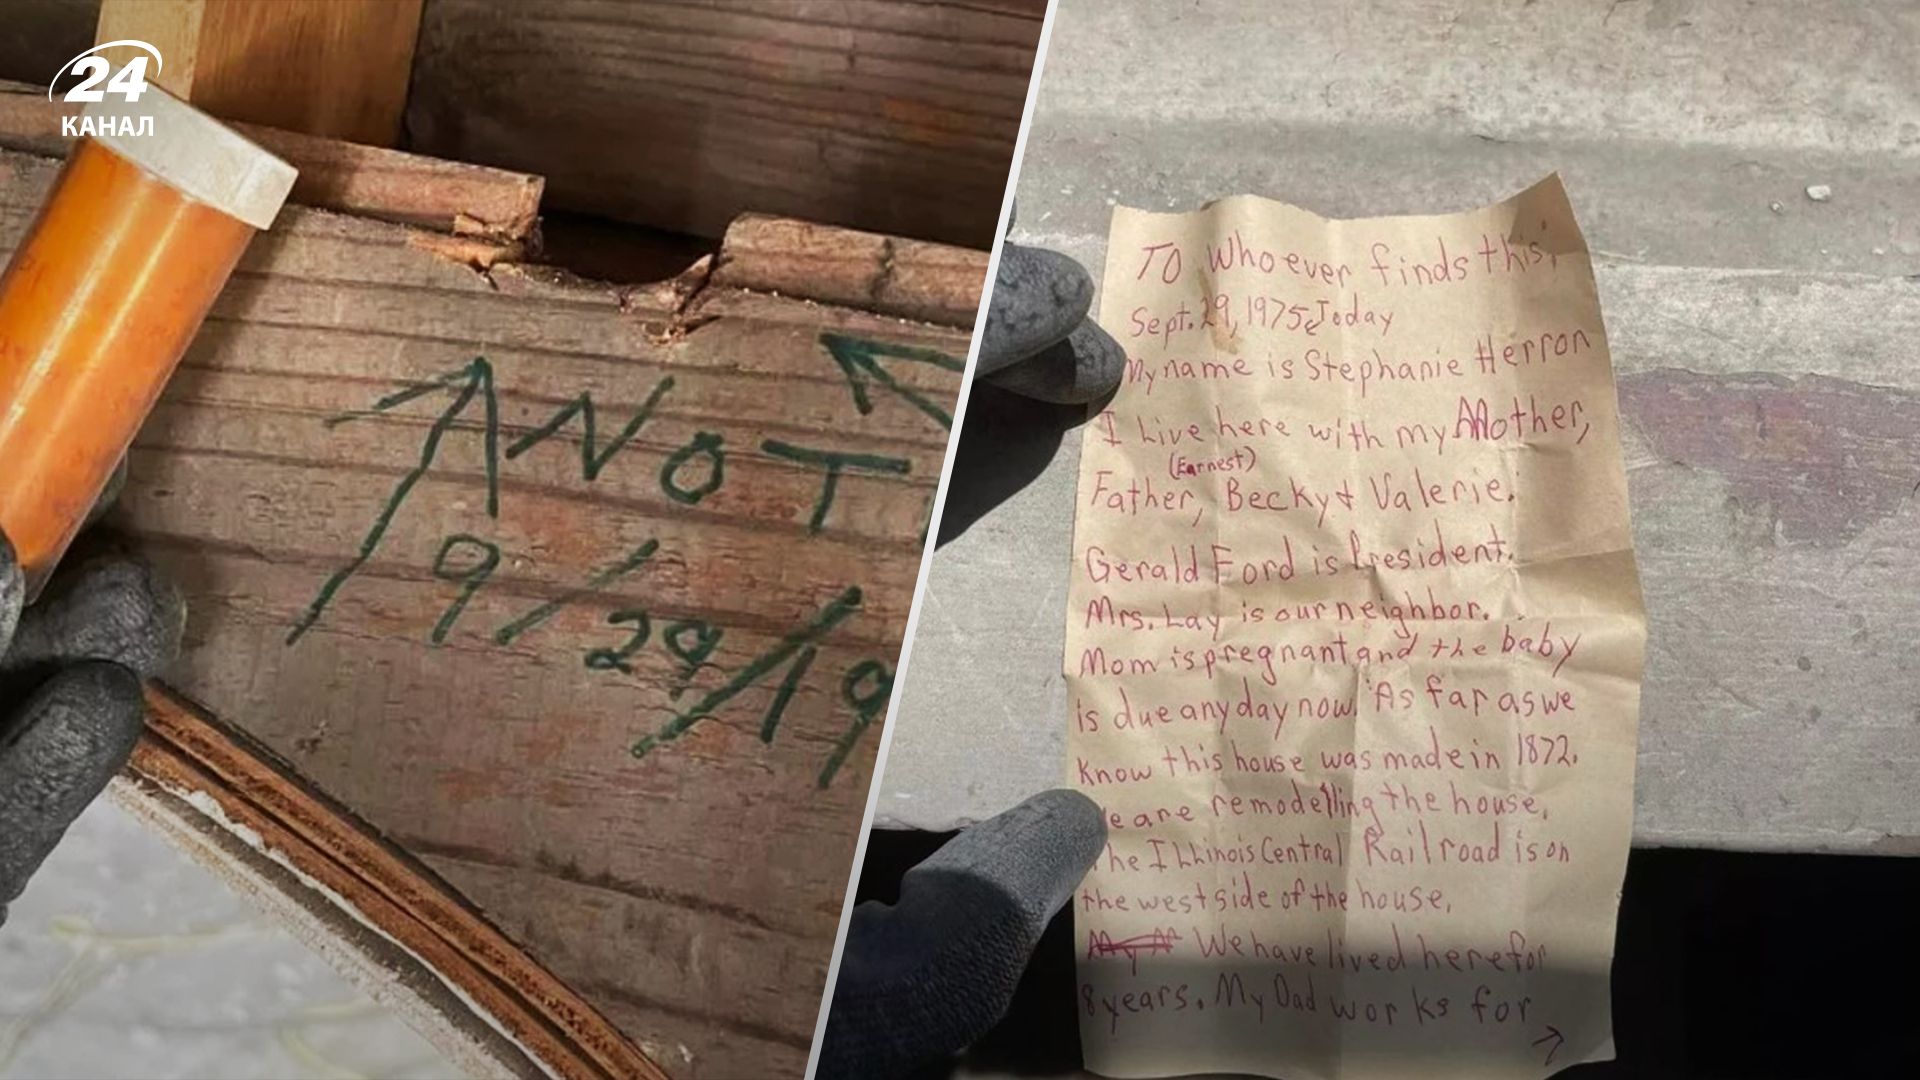 24
КАНАЛ
NOT
9/29/19
To Whoever finds this,
Sept. 29, 1975 Today
My name is Stephanie Herron
I Live here with my Mother,
(Earnest)
Father, Becky & Valerie.
Gerald Ford is President.
Mrs. Lay is our neighbor.
Mom is pregnant and the baby
is due any day now. As far as we
know this house was made in 1872.
We are remodelling the house.
The Illinois Central Railroad is on
the west side of the house.
We have lived here for
8 years. My Dad works for